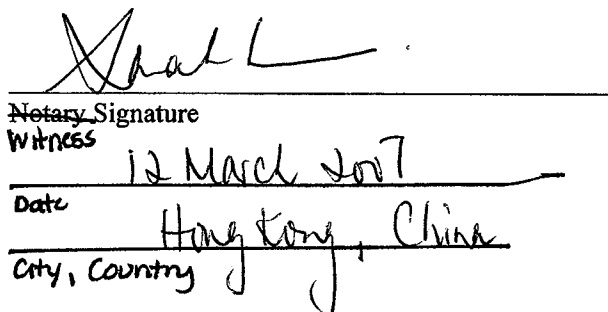 Notary Signature
Witness
12 March 2007
Date
Hong Kong, China
City, Country